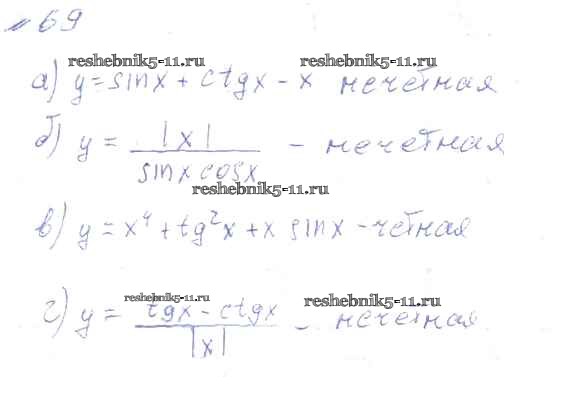 № 69
reshebnik5-11.ru reshebnik5-11.ru
а) y = sin x + ctg x - x нечетная
б) y = |x| / sin x cos x - нечетная
reshebnik5-11.ru
в) y = x⁴ + tg²x + x sin x - четная
reshebnik5-11.ru reshebnik5-11.ru
г) y = tg x - ctg x / |x| - нечетная